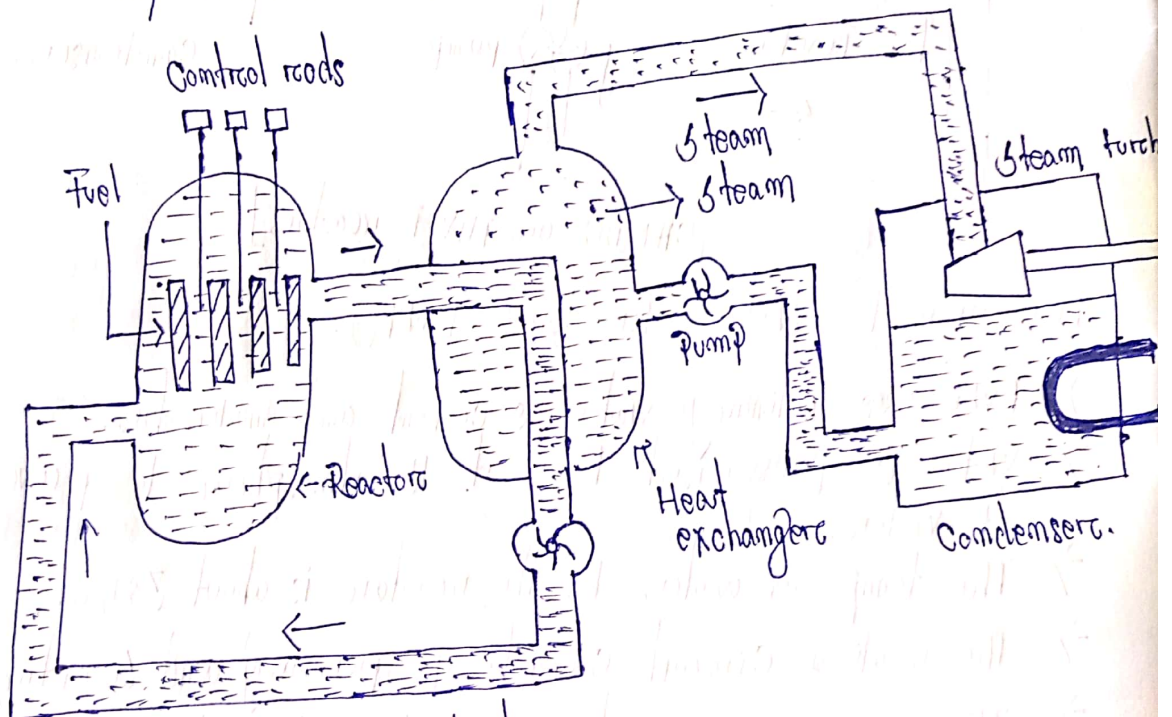 Control rods
Fuel
Steam
Steam
Steam turb
Pump
Reactor
Heat
exchanger
Condenser.